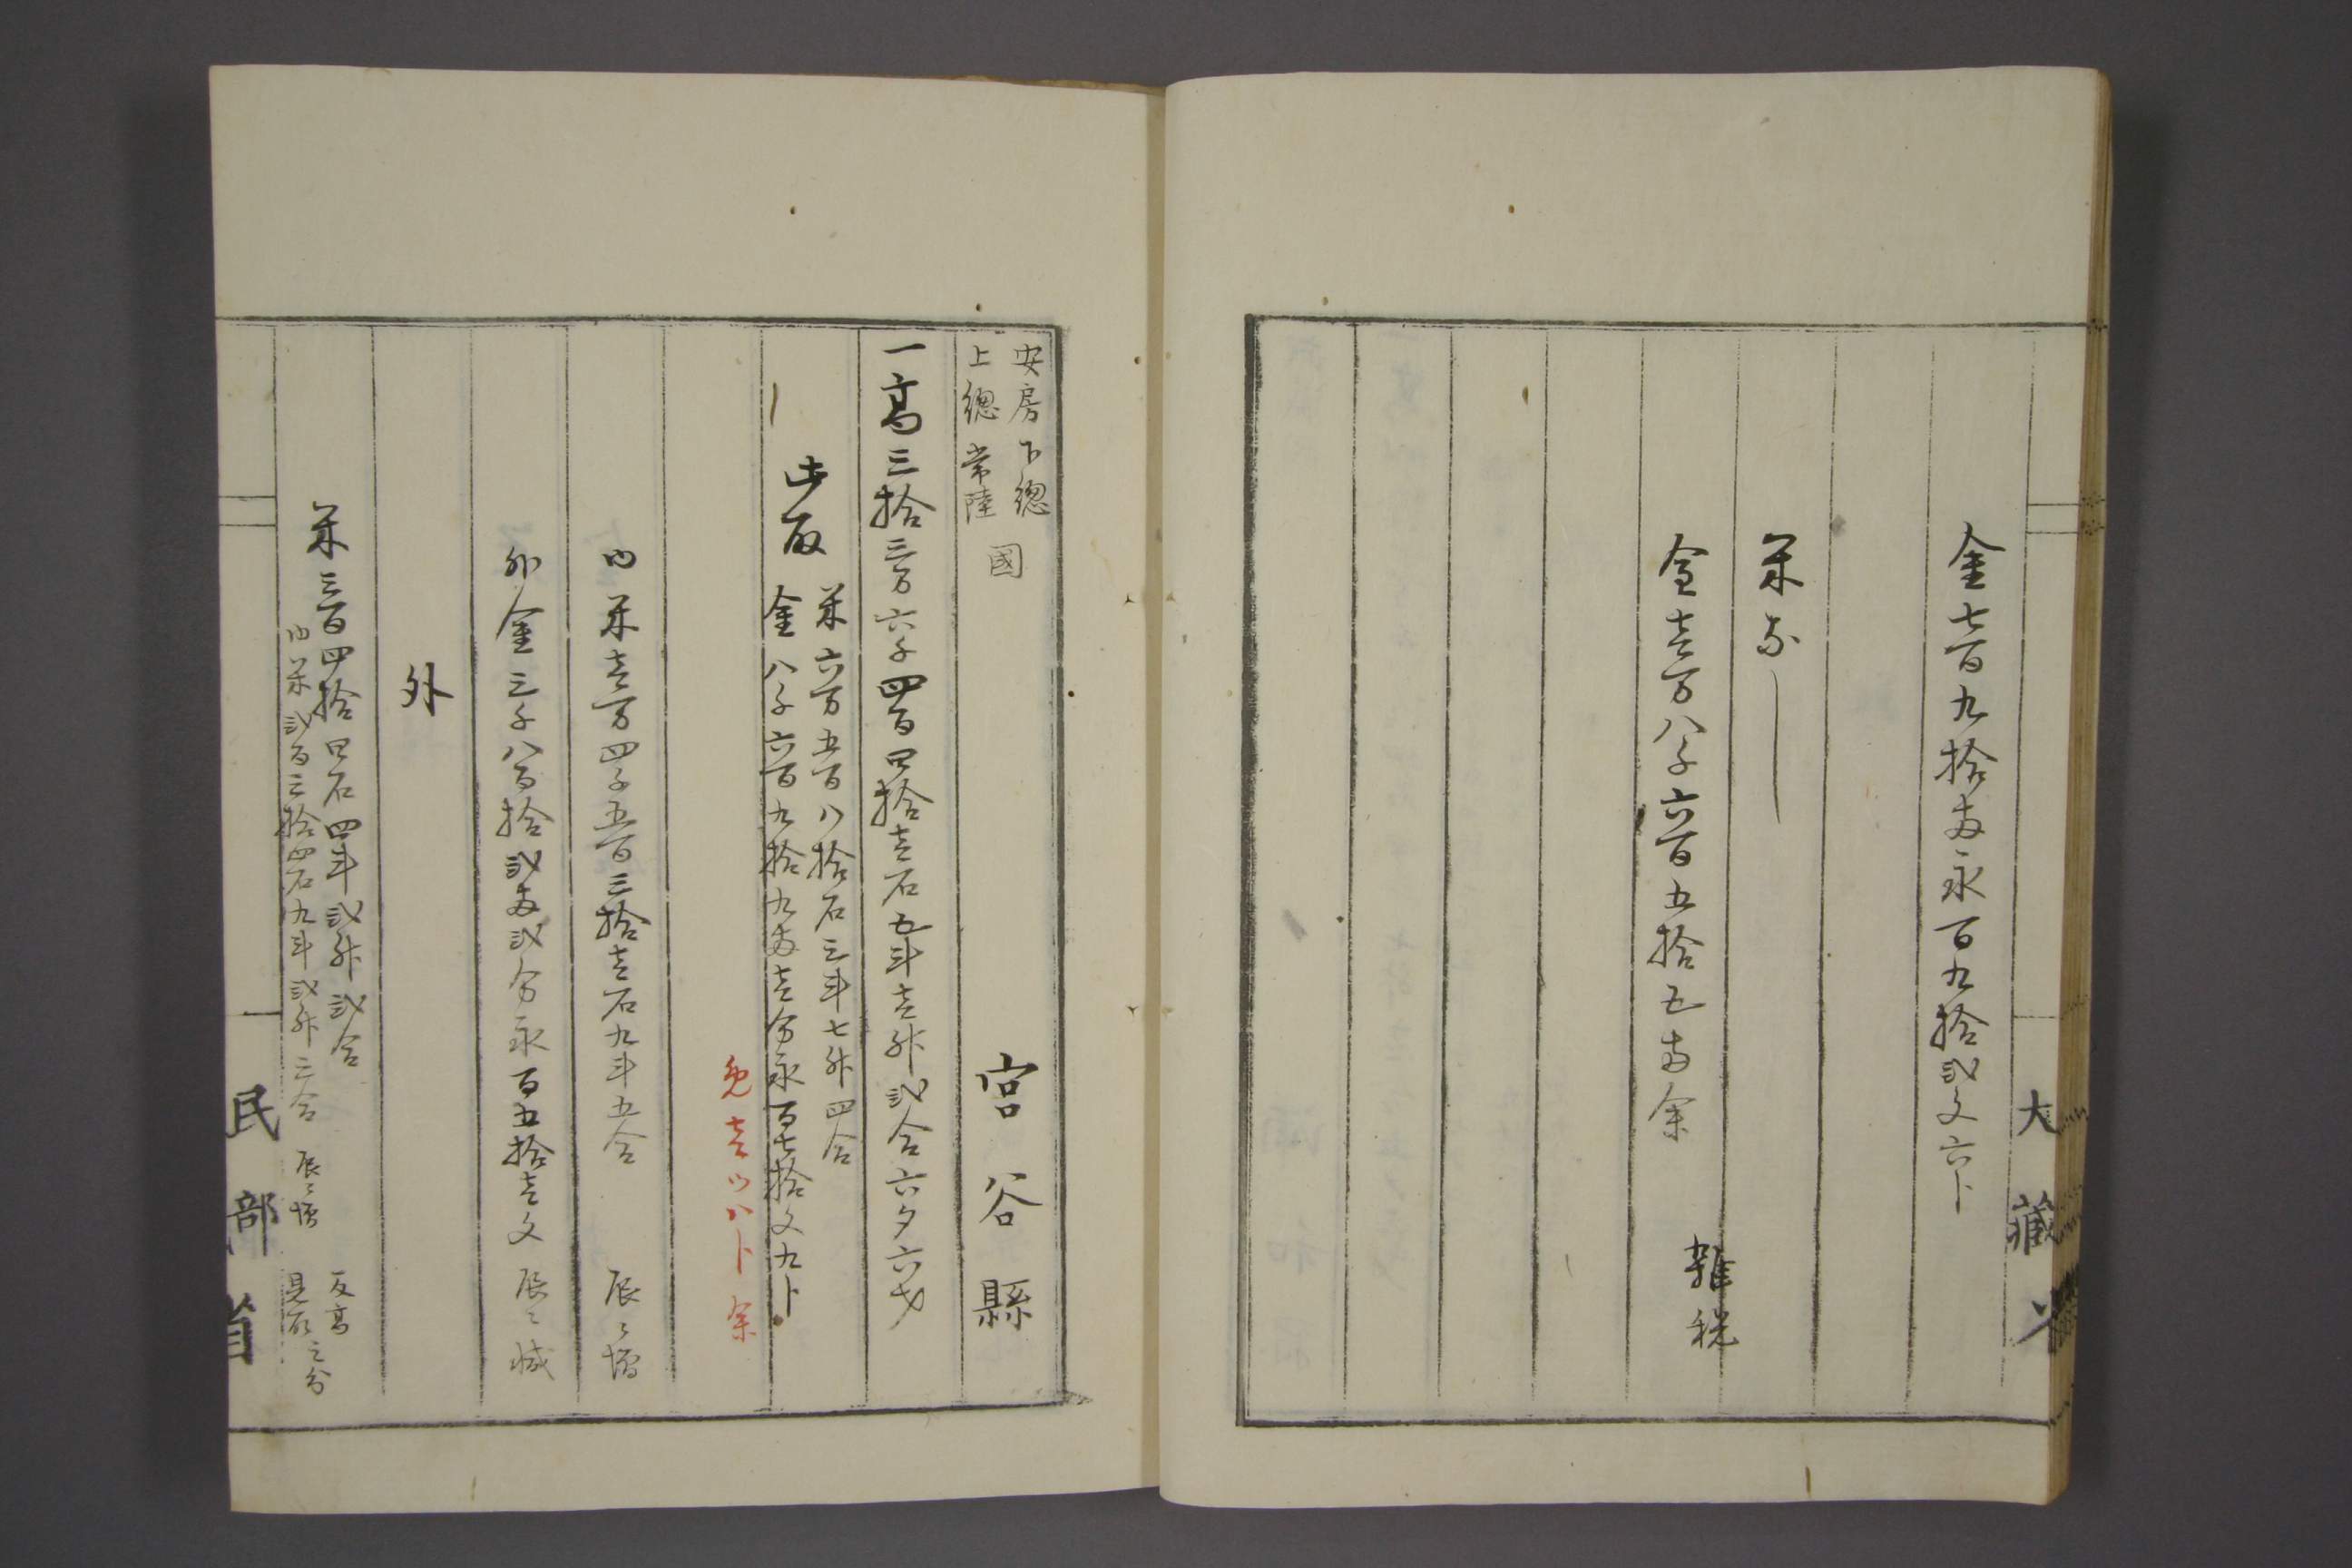 大藏省
金七百九拾両永百九拾弐文六卜
米なし
金壱万八千六百五拾五両余
雑税
安房下總
上總常陸
國
宮谷縣
一高三拾三万六千四百四拾壱石五斗壱升弐合六夕六才
此取
米六万五百八拾石三斗七升四合
金八千六百九拾九両壱分永百七拾文九卜
免壱ツ八卜余
内米壱万四千五百三拾壱石九斗五合 辰ゟ増
外金三千八百拾弐両弐分永百五拾壱文 辰ゟ減
外
米三百四拾四石四斗弐升弐合
反高
見取之分
内米弐百三拾四石九斗弐升三合 辰ゟ増
民部省